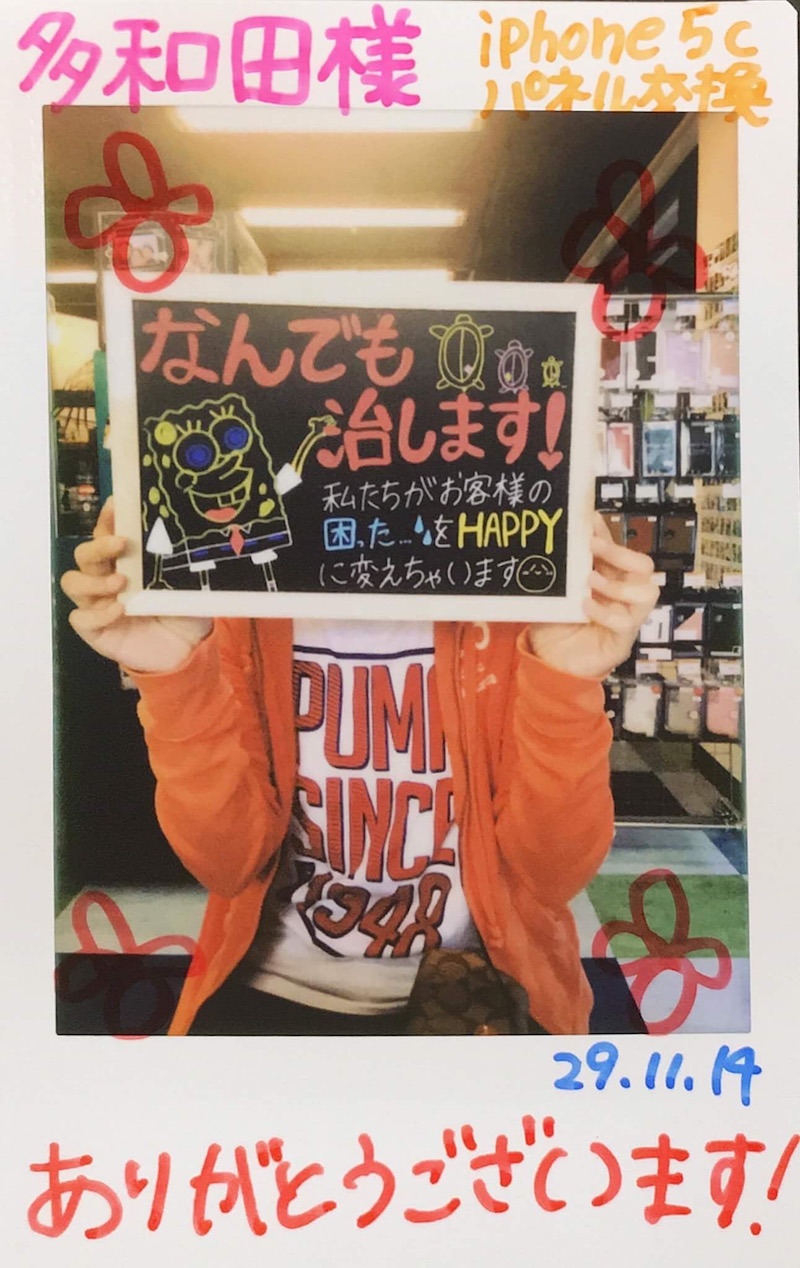 多和田様
iphone 5c
パネル交換
なんでも
治します!
私たちがお客様の
困った…をHAPPY
に変えちゃいます
PUM
SINCE
1948
29.11.14
ありがとうございます!